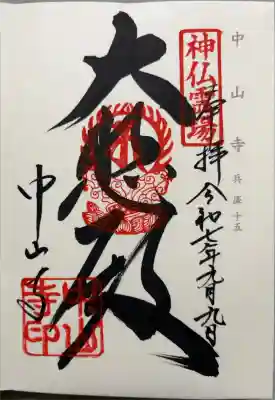 中山寺 兵庫十五
神仏霊場
奉拝 令和七年五月九日
大悲殿
中山寺
中山寺印